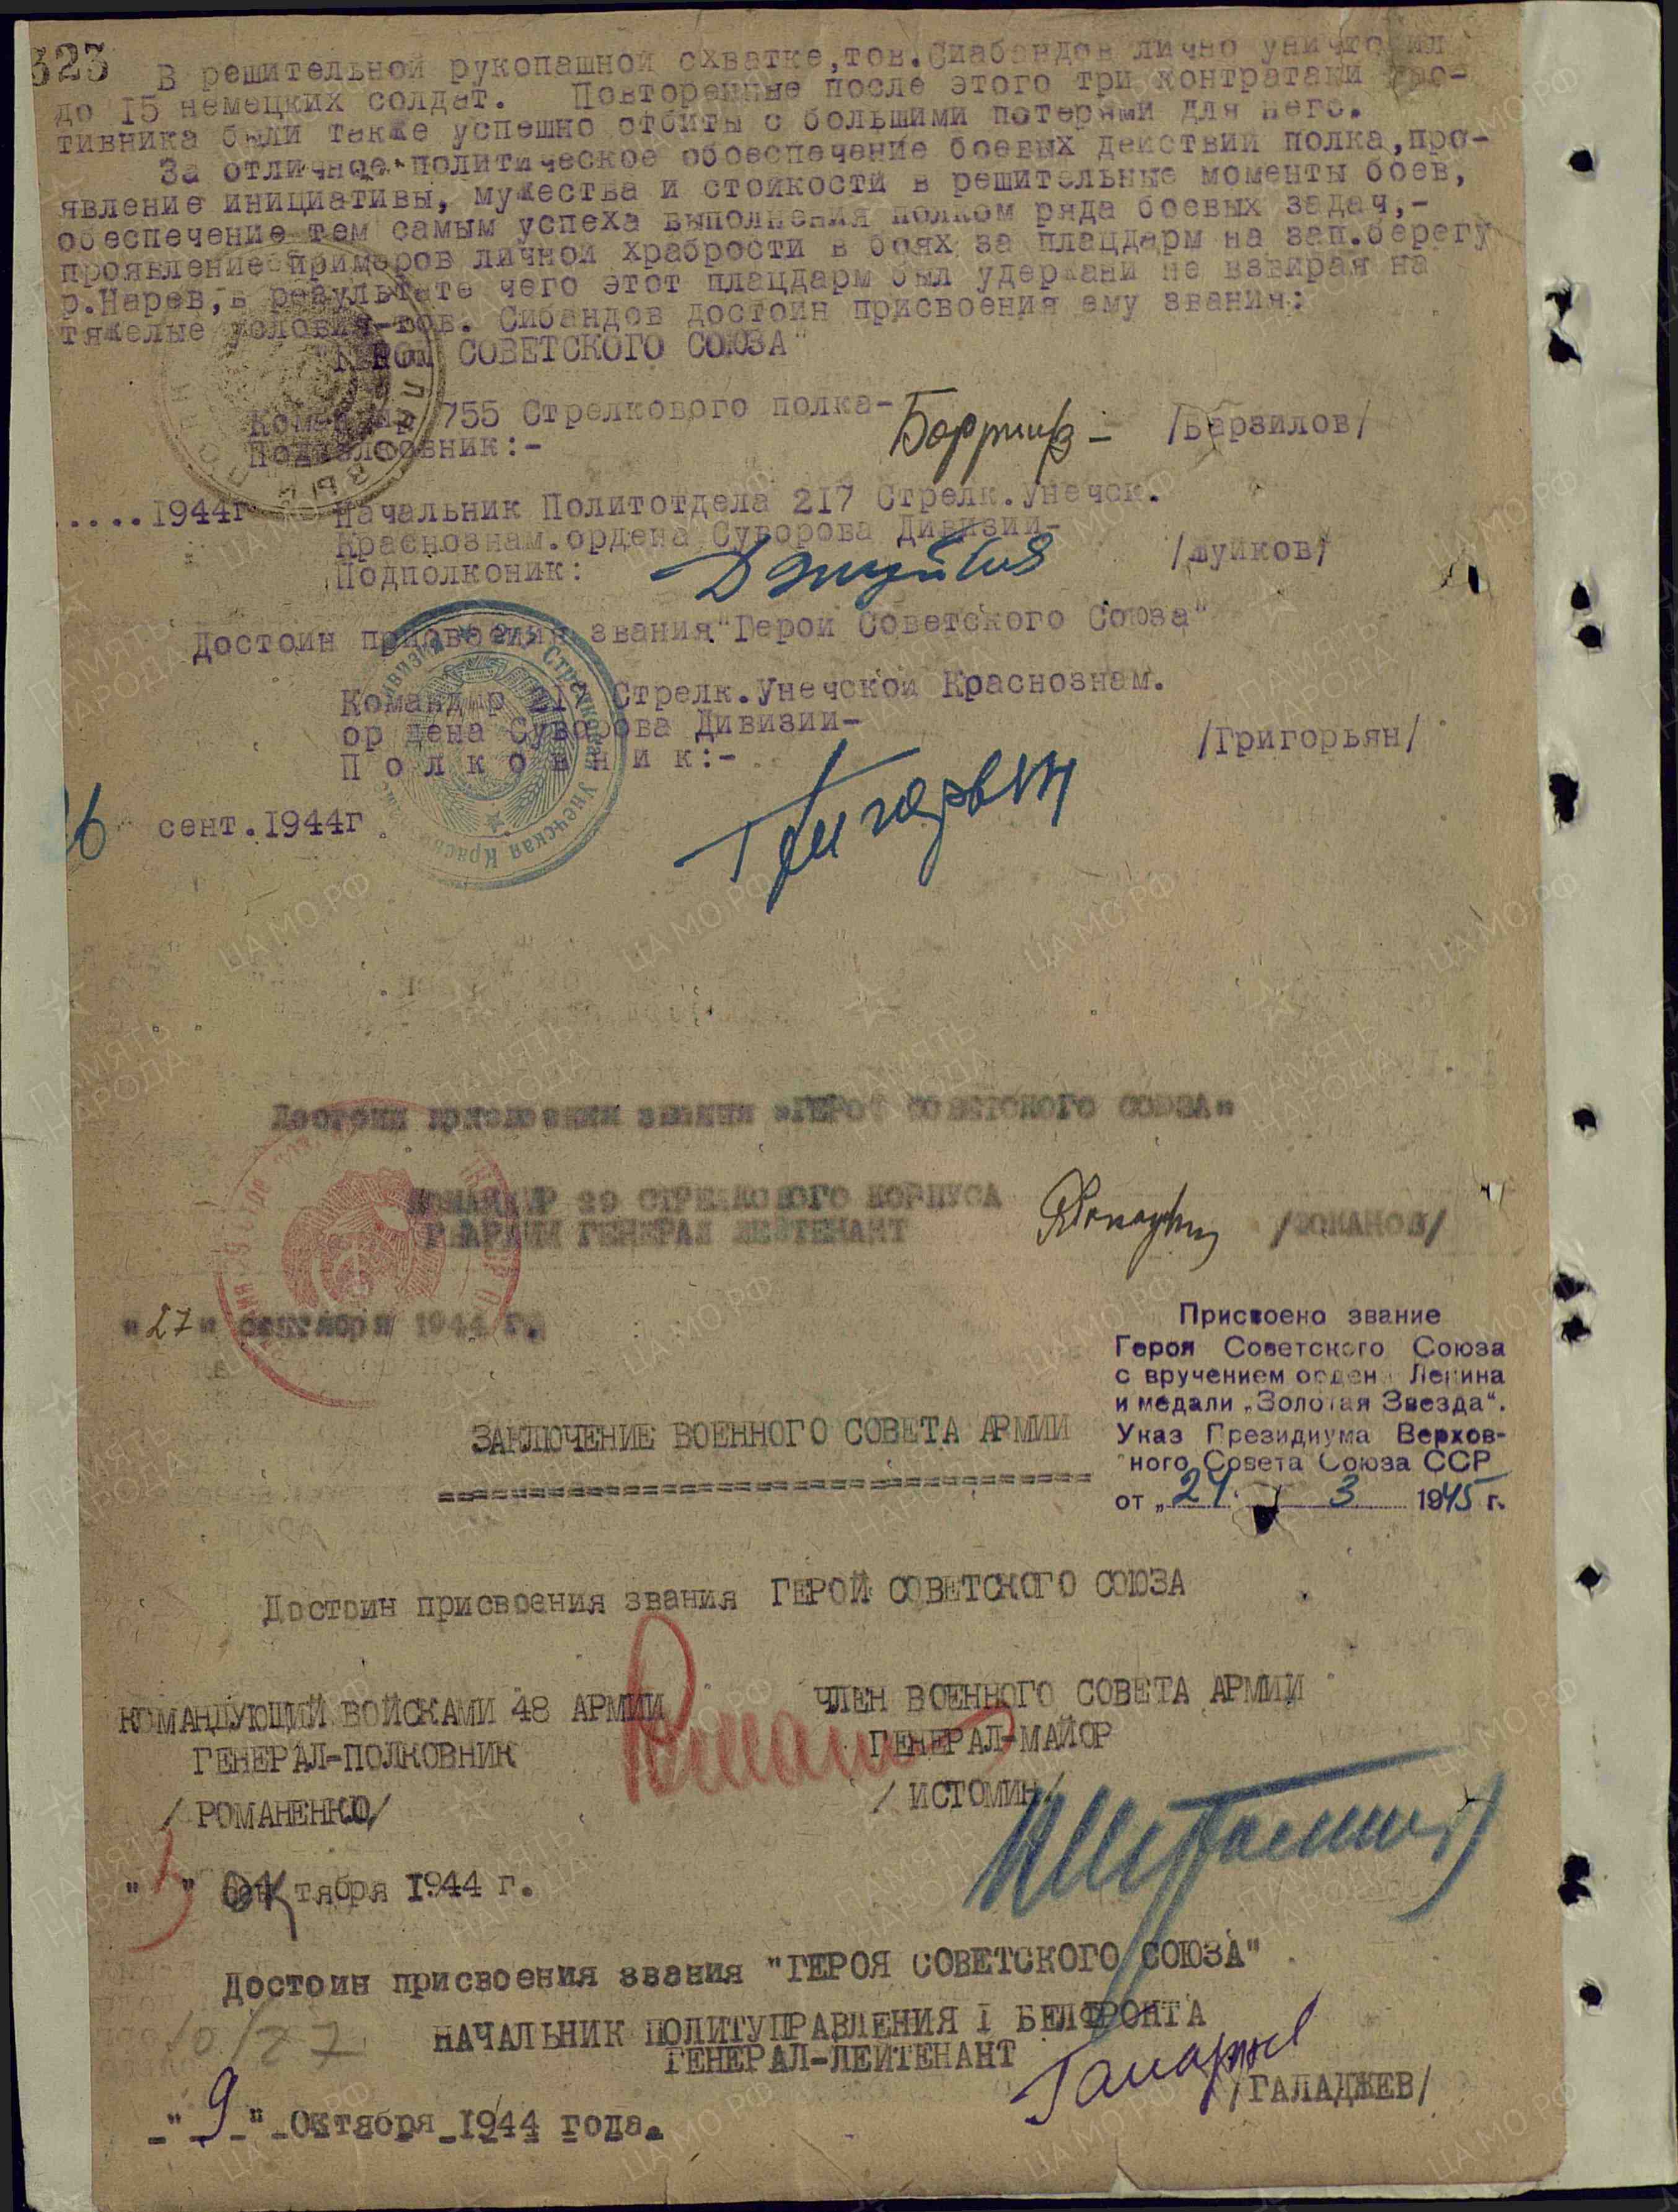 323
В решительной рукопашной схватке,тов.Сиабандов лично уничтожил
до 15 немецких солдат. Повторенные после этого три контратаки про-
тивника были также успешно отбиты с большими потерями для него.
За отличное политическое обоеспечение боевых действий полка,про-
явление инициативы, мужества и стойкости в решительные моменты боев,
обеспечение тем самым успеха выполнения полком ряда боевых задач,-
проявление примеров личной храбрости в боях за плацдарм на зап.берегу
р.Нарев,в результате чего этот плацдарм был удержани не взвирая на
тяжелые условия-тов. Сибандов достоин присвоения ему звания:
"ГЕРОЙ СОВЕТСКОГО СОЮЗА"
Командир 755 Стрелкового полка-
Подполковник:-
/Барзилов/
.....1944г
Начальник Политотдела 217 Стрелк.Унечск.
Краснознам.ордена Суворова Дивизии-
Подполконик:
/Шуйков/
Достоин присвоения звания"Герой Советского Союза"
Командир 217 Стрелк.Унечской Краснознам.
ор дена Суворова Дивизии-
П о л к о в н и к:-
/Григорьян/
Григорьян
26 сент.1944г.
Достоин присвоения звания "ГЕРОЯ СОВЕТСКОГО СОЮЗА"
КОМАНДИР 29 СТРЕЛКОВОГО КОРПУСА
ГВАРДИИ ГЕНЕРАЛ ЛЕЙТЕНАНТ
"27" сентября 1944 г.
Присвоено звание
Героя Советского Союза
с вручением ордена Ленина
и медали „Золотая Звезда".
Указ Президиума Верхов-
ного Совета Союза ССР
от „24" 3 1945 г.
ЗАКЛЮЧЕНИЕ ВОЕННОГО СОВЕТА АРМИИ
=====================================
Достоин присвоения звания ГЕРОЙ СОВЕТСКОГО СОЮЗА
КОМАНДУЮЩИЙ ВОЙСКАМИ 48 АРМИИ
ГЕНЕРАЛ-ПОЛКОВНИК
/РОМАНЕНКО/
ЧЛЕН ВОЕННОГО СОВЕТА АРМИИ
ГЕНЕРАЛ-МАЙОР
/ИСТОМИН/
" " Октября 1944 г.
Достоин присвоения звания "ГЕРОЯ СОВЕТСКОГО СОЮЗА"
НАЧАЛЬНИК ПОЛИТУПРАВЛЕНИЯ I БЕЛФРОНТА
ГЕНЕРАЛ-ЛЕЙТЕНАНТ
/ГАЛАДЖЕВ/
"9" Октября 1944 года.